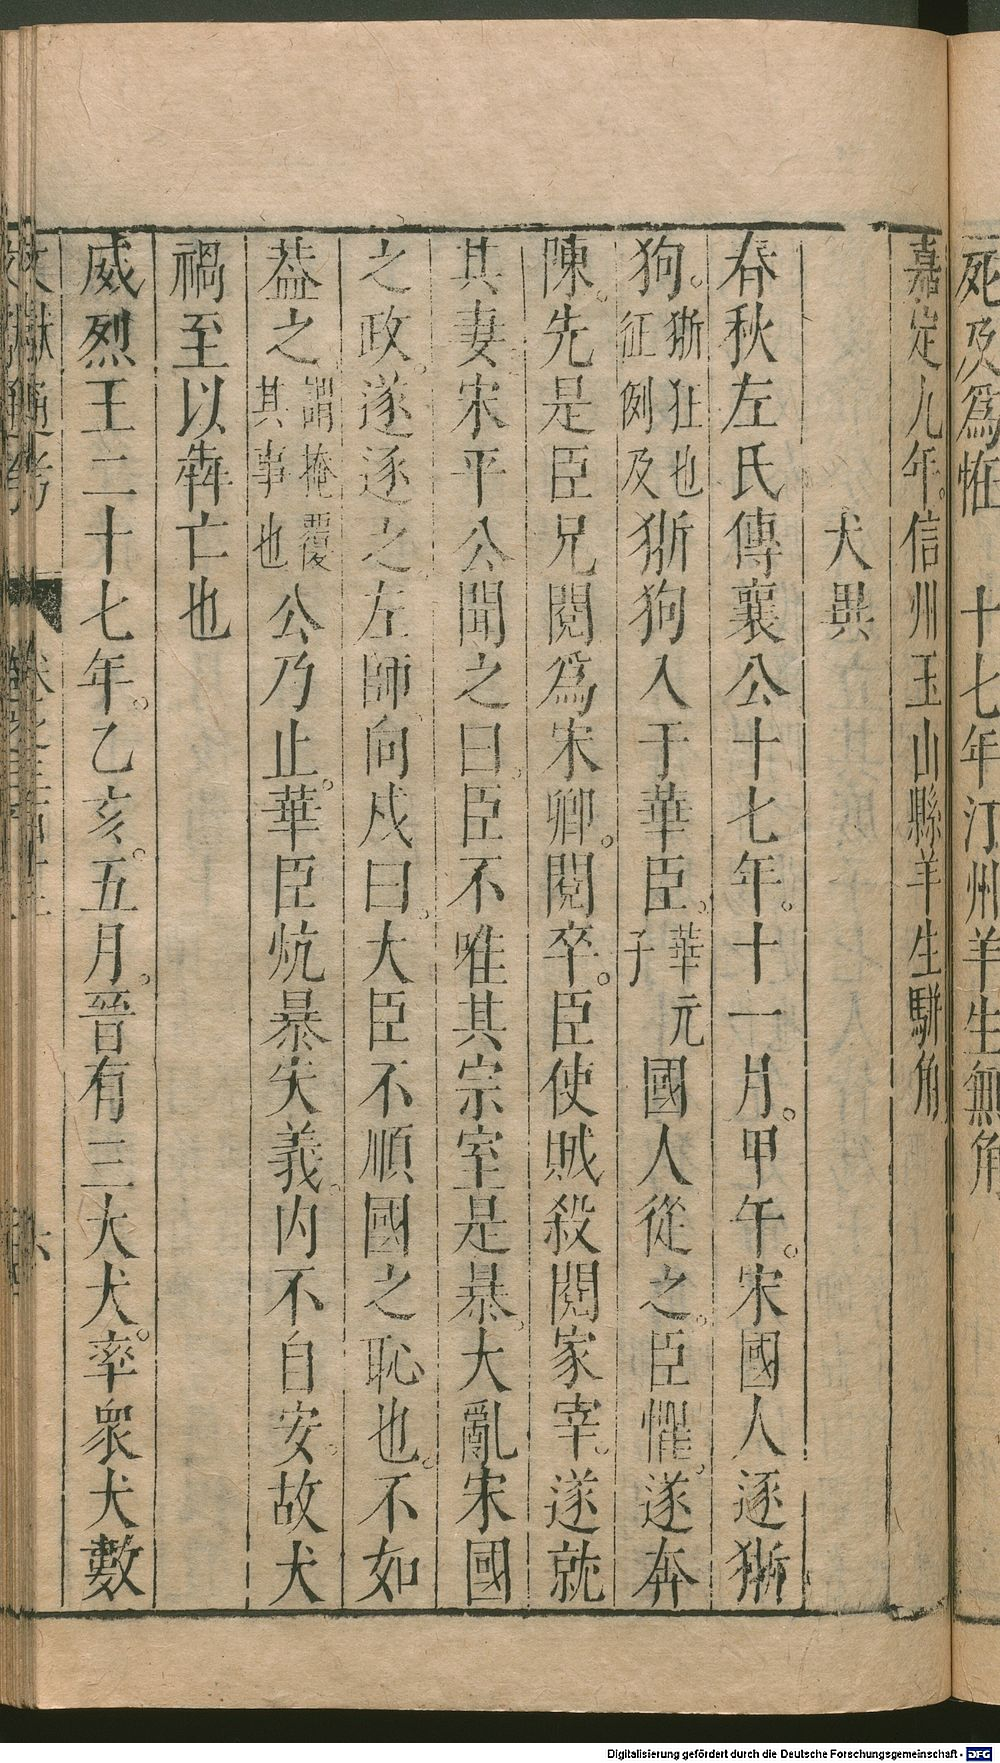 死及爲恠　十七年汀州羊生無角
嘉定九年信州玉山縣羊生駢角
犬異
春秋左氏傳襄公十七年十一月甲午宋國人逐猘
狗猘狂也征例及猘狗入于華臣華元子國人從之臣懼遂奔
陳先是臣兄閱爲宋卿閱卒臣使賊殺閱家宰遂就
其妻宋平公聞之曰臣不唯其宗室是暴大亂宋國
之政遂逐之左師向戌曰大臣不順國之恥也不如
葢之謂掩覆其事也公乃止華臣炕暴失義内不自安故犬
禍至以犇亡也
威烈王二十七年乙亥五月晉有三大犬率衆犬數
文獻通考
Digitalisierung gefördert durch die Deutsche Forschungsgemeinschaft - DFG